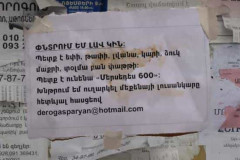 ՓՆՏՐՈՒՄ ԵՄ ԼԱՎ ԿԻՆ:
Պետք է եփի, թափի, լվանա, կարի, ձուկ
մաքրի, տոլմա բան փաթթի:
Պետք է ունենա «Մերսեդես 600»:
Խնդրում եմ ուղարկել մեքենայի լուսանկարը
հետևյալ հասցեով
derogasparyan@hotmail.com